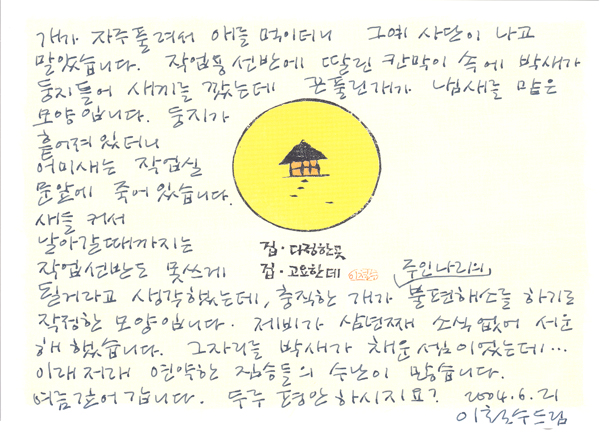 개가 자주풀려서 애를 먹이더니 그예 사단이 나고
말았습니다. 작업용선반에 딸린 칸막이 속에 박새가
둥지틀어 새끼를 깠는데 끈풀린개가 냄새를 맡은
모양입니다. 둥지가
흩어져있더니
어미새는 작업실
문앞에 죽어있습니다.
새들 커서
날아갈때까지는
작업선반도 못쓰게
집·다정한곳
집·고요한데
주인나리의
될거라고 생각했었는데, 충직한 개가 불편해소를 하기로
작정한 모양입니다. 제비가 삼년째 소식없어 서운
해 했습니다. 그자리를 박새가 채운 셈이었는데…
이래저래 연약한 짐승들의 수난이 많습니다.
여름깊어 갑니다. 두루 평안하시지요? 2004.6.21
이철수드림